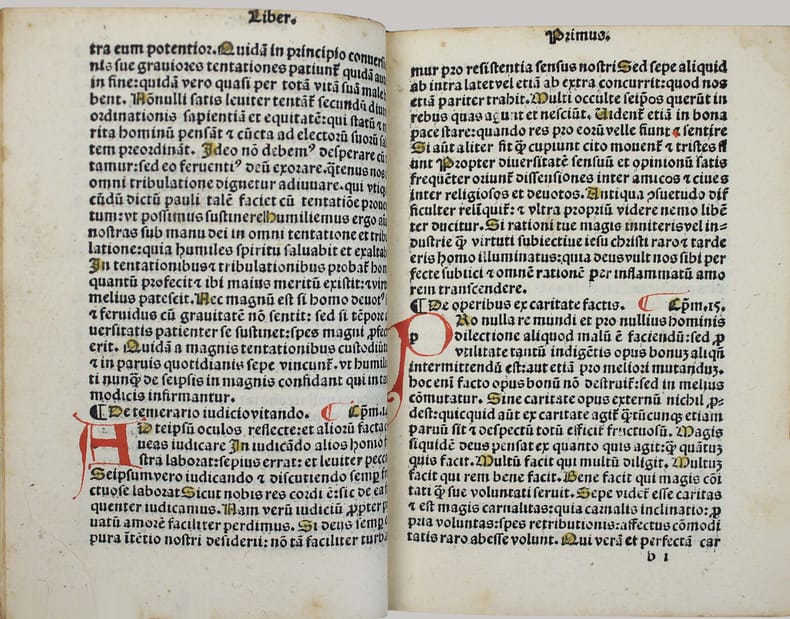 Liber.
tra eum potentior. Quidā in principio conuersi
nis sue grauiores tentationes patiunt᷑ quidā aut
in fine: quidā vero quasi per totā vitā suā male
bent. Nōnulli satis leuiter tentāt᷑ secundū diui
ordinationis sapientiā et equitatē: qui statū ⁊
rita hominū pensāt ⁊ cūcta ad electorū suorū sa
tem preordināt. Ideo nō debemꝰ desperare cū
tamur: sed eo feruentiꝰ deū exorare. q̄tenus nos
omni tribulatione dignetur adiuuare. qui vtiq;
cūdū dictū pauli talē faciet cū tentatiōe proue
tum: vt possimus sustinere Humiliemus ergo aīa
nostras sub manu dei in omni tentatione et tribu
latione: quia humiles spiritu saluabit et exaltab
In tentationibus ⁊ tribulationibus probat᷑ hom
quantū profecit ⁊ ibi maius meritū existit: ⁊ vir
melius patescit. Nec magnū est si homo deuotꝰ
⁊ feruidus cū grauitatē nō sentit: sed si tēpore
uersitatis patienter se sustinet: spes magni ꝓfec
erit. Quidā a magnis tentationibus custodiūt
⁊ in paruis quotidianis sepe vincunt᷑. vt humili
ti nunq̄ de seipsis in magnis confidant qui in tā
modicis infirmantur.
¶ De temerario iudicio vitando. ¶ Cpm̄. 14
AD teipsū oculos, reflecte: et aliorū facta
ueas iudicare In iudicādo alios homo f
stra laborat: sepius errat: et leuiter pecc
Seipsum vero iudicando ⁊ discutiendo semp f
ctuose laborat Sicut nobis res cordi ē: sic de ea
quenter iudicamus. Nam verū iudiciū ꝓpter p
uatū amorē faciliter perdimus. Si deus semp e
pura ītētio nostri desiderii: nō tā faciliter turba
Primus.
mur pro resistentia sensus nostri Sed sepe aliquid
ab intra latet vel etiā ab extra concurrit: quod nos
etiā pariter trahit. Multi occulte seip̄os querūt in
rebus quas agunt et nesciūt. Vident᷑ etiā in bona
pace stare: quando res pro eorū velle fiunt ⁊ sentire
Si aūt aliter fit q̄ cupiunt cito mouent᷑ ⁊ tristes fi
unt Propter diuersitatē sensuū et opinionū satis
frequēter oriunt᷑ dissensiones inter amicos ⁊ ciues
inter religiosos et deuotos. Antiqua ꝯsuetudo dif
ficulter relīquit᷑: ⁊ vltra propriū videre nemo libē
ter ducitur. Si rationi tue magis inniteris vel in=
dustrie q̄ virtuti subiectiue iesu christi raro ⁊ tarde
eris homo illuminatus: quia deus vult nos sibi per
fecte subiici ⁊ omnē rationē per inflammatū amo
rem transcendere.
¶ De operibus ex caritate factis. ¶ Cpm̄. 15.
PRo nulla re mundi et pro nullius hominis
dilectione aliquod malū ē faciendū: sed ꝓ
vtilitate tantū indigētis opus bonuꝫ aliqñ
intermittendū est: aut etiā pro meliori mutanduꝫ.
hoc enī facto opus bonū nō destruit᷑: sed in melius
cōmutatur. Sine caritate opus externū nichil ꝓ=
dest: quicquid aūt ex caritate agit᷑ q̄tūcunqꝫ etiam
paruū sit ⁊ despectū totū efficit᷑ fructuosū. Magis
siquidē deus pensat ex quanto quis agit: q̄ quātuꝫ
quis facit. Multū facit qui multū diligit. Multuꝫ
facit qui rem bene facit. Bene facit qui magis cōi
tati q̄ sue voluntati seruit. Sepe videt᷑ esse caritas
⁊ est magis carnalitas: quia carnalis inclinatio: ꝓ
pria voluntas: spes retributionis: affectus cōmodi
tatis raro abesse volunt. Qui verā et perfectā car
b 1